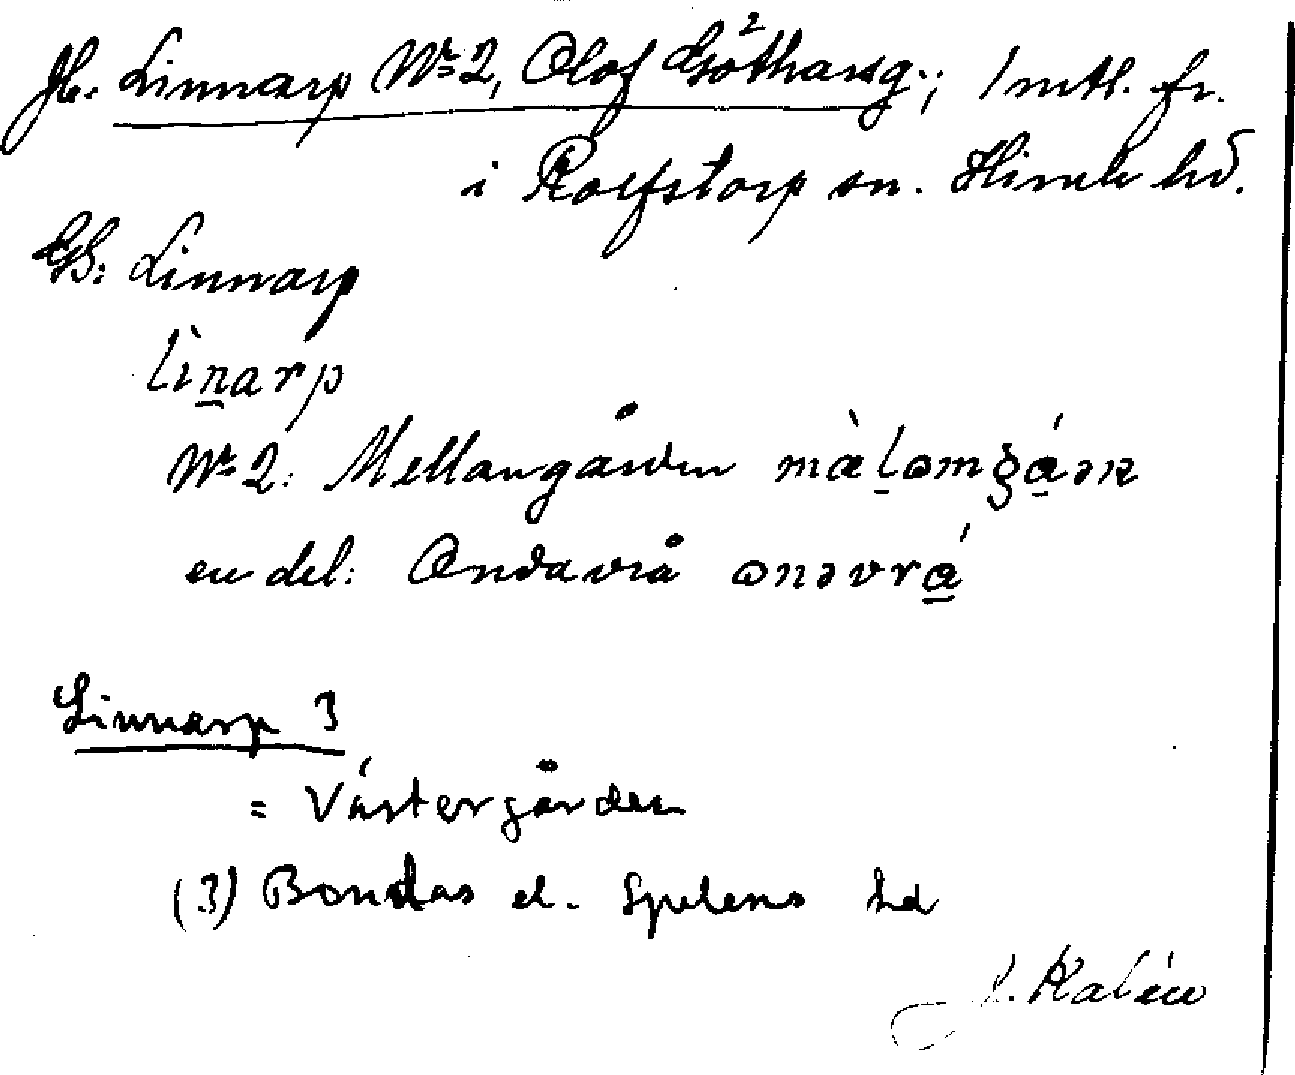 Jb. Linnarp No 2, Olof Göthars g.; 1 mtl. fr.
i Rolfstorp sn. Himle hd.
GB: Linnarp
lìn̲arp
No 2: Mellangården màl̲omgá̲ən
en del: Ondavrå onəvrá̲
Linnarp 3
= Västergården
(3) Bondas el. Spelens
J. Kalén